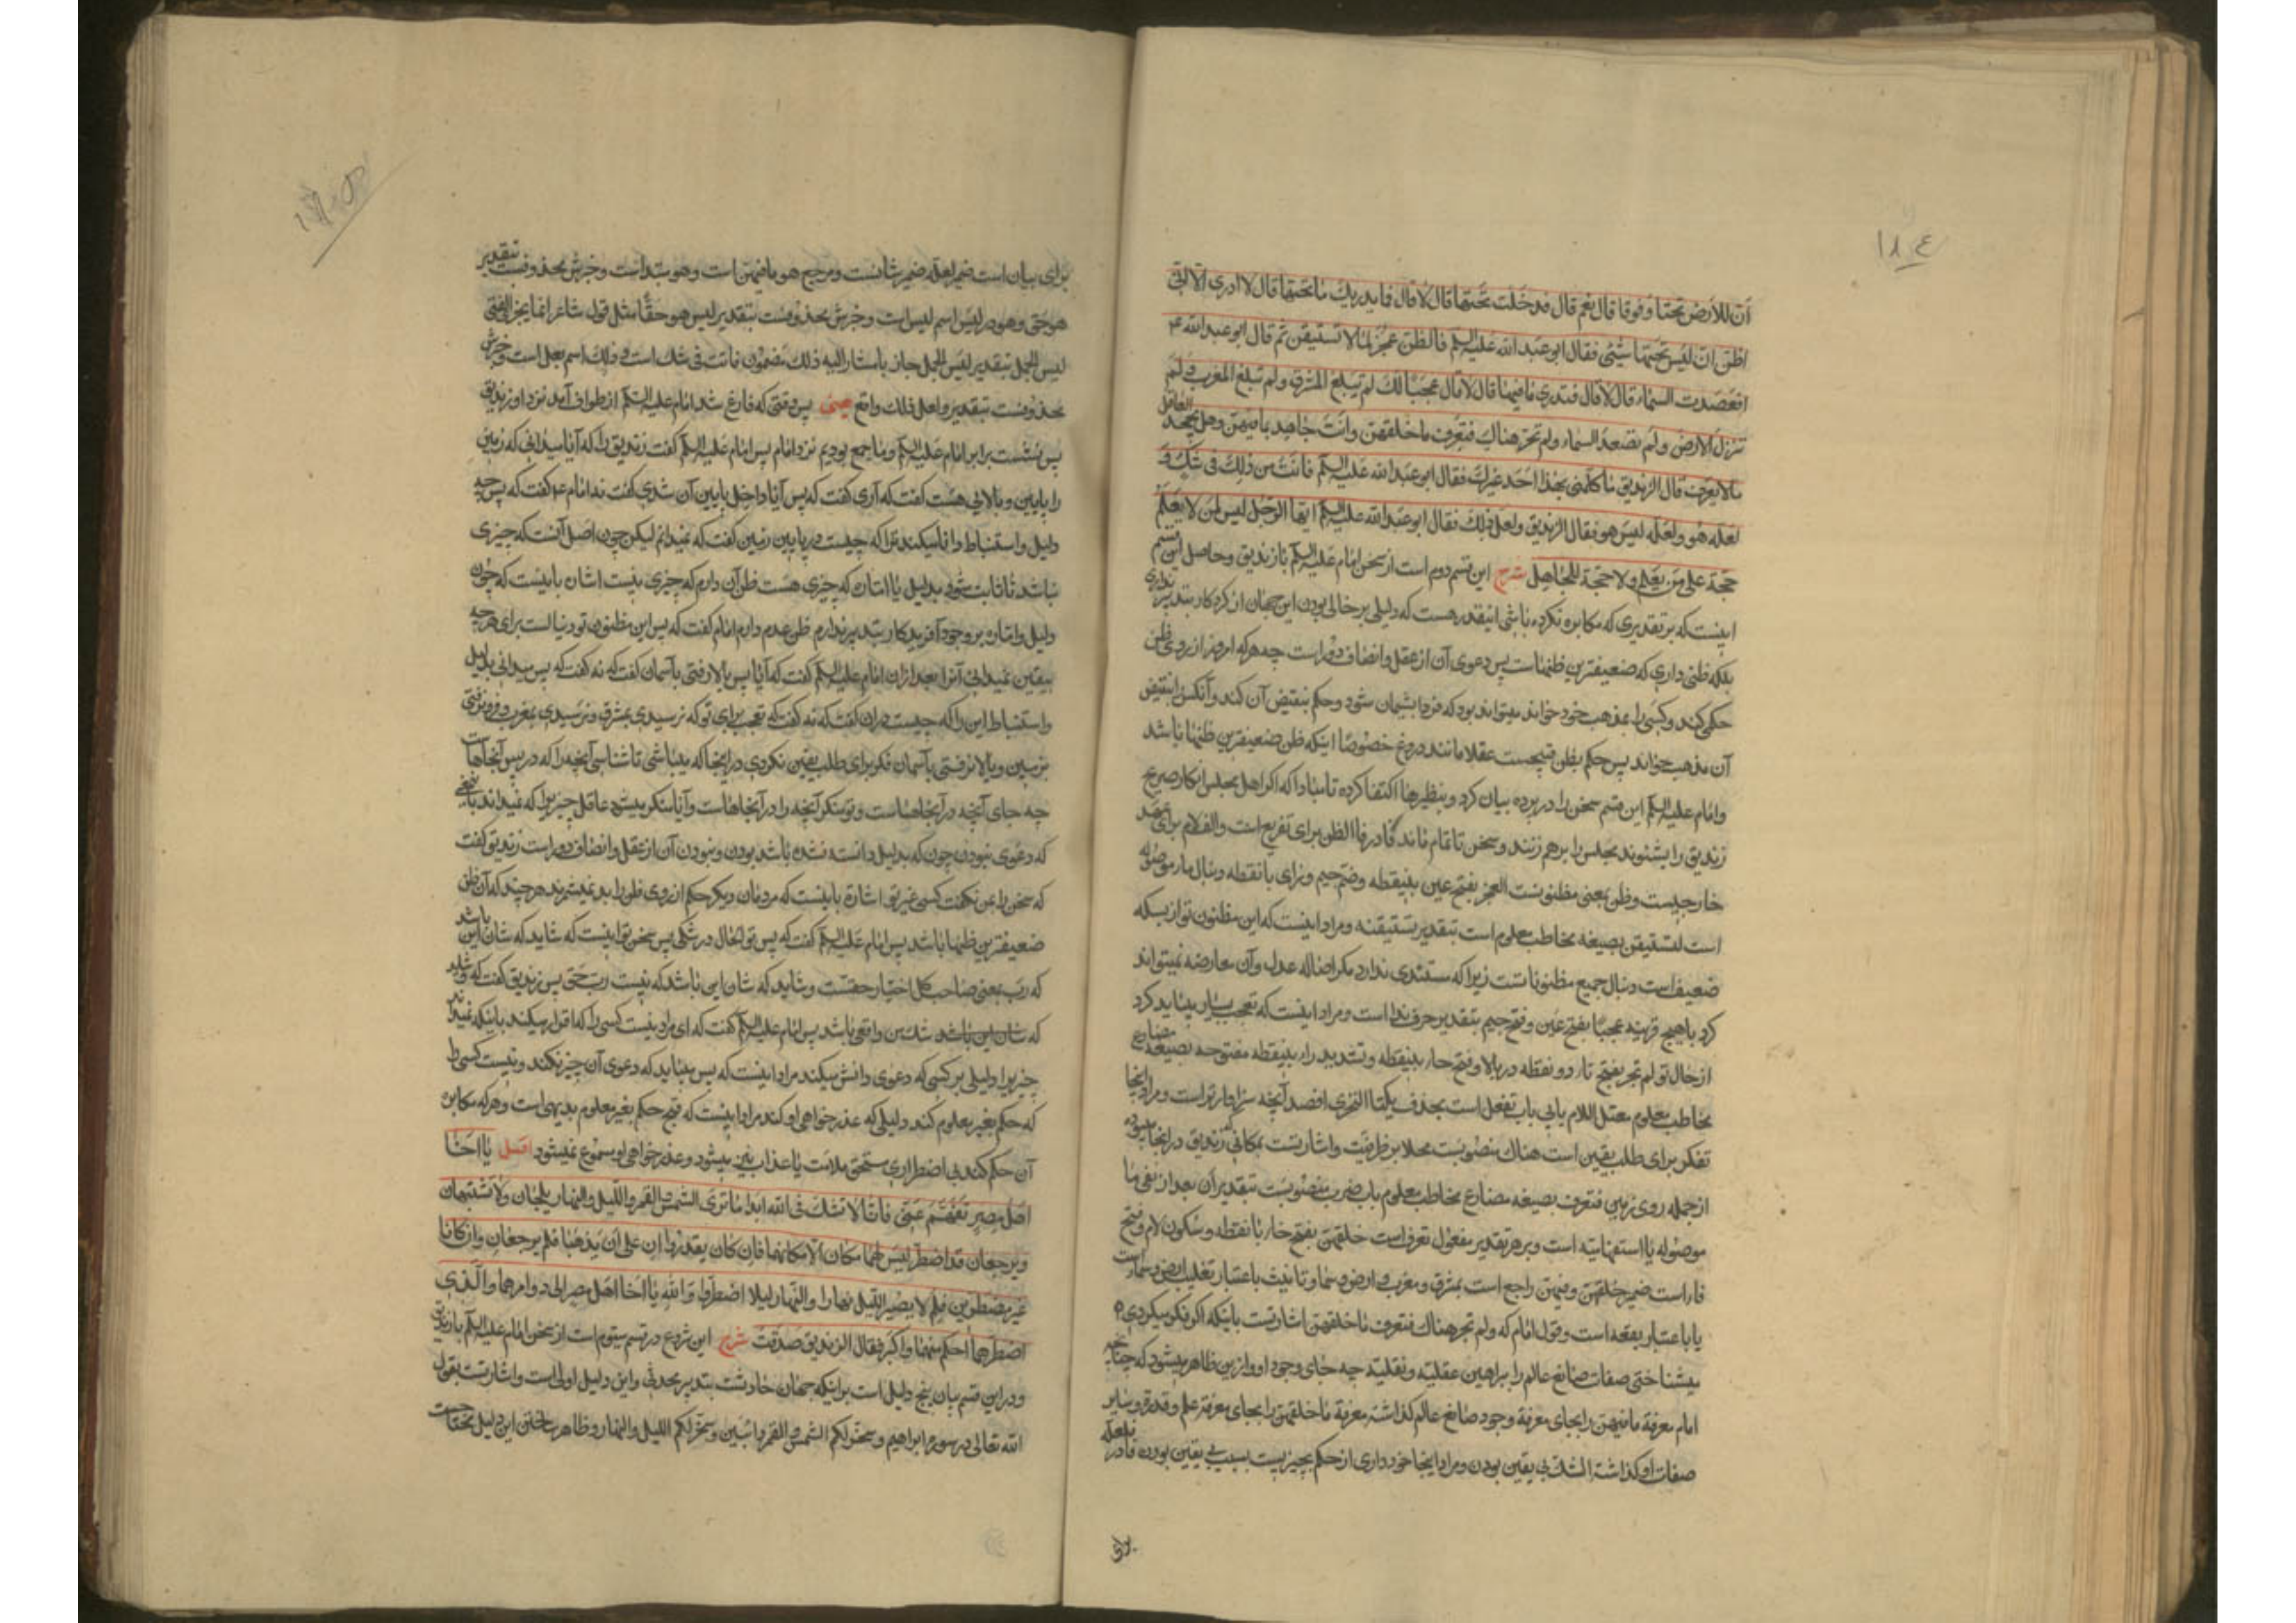 ١٨٤
أنّ للأرض تحتا وفوقا قال نعم قال فدخلت تحتها قال لا قال فما يدريك ما تحتها قال لا ادري الا اني
اظن ان ليس تحتها شيئ فقال ابو عبد الله عليه السلم فالظن عجز لما لا تستيقن ثم قال ابو عبد الله ع
افصعدت السماء قال لا قال فتدري ما فيها قال لا قال عجبا لك لم تبلغ المشرق ولم تبلغ المغرب و لم
تنزل الارض ولم تصعد السماء ولم تجز هناك فتعرف ما خلقهن وانت جاحد بما فيهن وهل يجحد العاقل
ما لا يعرف قال الزنديق ما كلّمني بهذا احد غيرك فقال ابو عبد الله عليه السلم فانت من ذلك في شك و
لعله هو ولعله ليس هو فقال الزنديق ولعل ذلك فقال ابو عبد الله عليه السلم ايها الرجل ليس لمن لا يعلم
حجة على من يعلم ولا حجة للجاهل شرح این قسم دوم است از سخن امام علیه السلم با زندیق وحاصل این قسم
اینست که بر تقدیری که مکابره نکرده باشی اینقدر هست که دلیلی بر خالی بودن این جهان از کردکار بتدبیر نداری
بلکه ظنی داری که ضعیفترین ظنهاست پس دعوی آن از عقل وانصاف دور است چه هر که امروز از روی ظن
حکمی کند وکسی را بمذهب خود خواند میتواند بود که فردا پشیمان شود وحکم بنقیض آن کند وآنکس را بنقیض
آن مذهب خواند پس حکم بظن قبیحست عقلا مانند دروغ خصوصا اینکه ظن ضعیفترین ظنها باشد
وامام علیه السلم این قسم سخن را در پرده بیان کرد و بنظیرها اکتفا کرده تا مبادا که اکر اهل مجلس انکار صریح
زندیق را بشنوند مجلس را برهم زنند وسخن ناتمام ماند فا در فالظن برای تفریع است والف لام برای عهد
خارجیست وظن بمعنی مظنونست العجز بفتح عین بینقطه وضم جیم وزای با نقطه ما موصوله
است لتستیقن بصیغه مخاطب معلوم است بتقدیر تستیقنه ومراد اینست که این مظنون تو از بسکه
ضعیف است دنبال جمیع مظنوناتست زیرا که مستندی ندارد مکر اصاله عدل وآن معارضه نمیتواند
کرد با هیچ قرینه عجبا بفتح عین وفتح جیم بتقدیر حرف ندا است ومراد اینست که تعجب بسیار میباید کرد
از حال تو لم تجز بفتح تاء دو نقطه در بالا وفتح حاء بینقطه وتشدید راء بینقطه مفتوحه بصیغه مضارع
مخاطب معلوم معتل اللام یایی باب تفعل است بحذف یکتا التحری افصد آنچه سزاوارتر است ومراد اینجا
تفکر برای طلب یقین است هناک منصوبست محلا بر ظرفیت واشارتست بمکانی زندیق در اینجا نبوده
از جمله روی زمین فتعرف بصیغه مضارع مخاطب معلوم باب ضرب منصوبست بتقدیر أن بعد از نفی ما
موصوله یا استفهامیّه است وبر هر تقدیر مفعول تعرف است خلقهن بفتح خاء با نقطه وسکون لام وفتح
فاء است ضمیر خلقهن وفیهن راجع است بمشرق ومغرب وارض وسما وتانیث باعتبار تغلیب ارض وسما است
یا باعتبار بقعه است وقول امام که ولم تجز هناک فتعرف ما خلقهن اشارتست باینکه اکر فکر میکردی
میشناختی صفات صانع عالم را ببراهین عقلیه ونقلیه چه جای وجود او وازین ظاهر میشود که چنانچه
امام معرفة ما فیهن را بجای معرفة وجود صانع عالم کذاشته معرفة ما خلقهن را بجای معرفة علم وقدرة وسایر
صفات او کذاشته الشک بی یقین بودن ومراد اینجا خود داری از حکم بچیزیست بسبب بی یقین بوده فا در فلعله
برای بیان است ضمیر لعله ضمیر شانست ومرجع هو ما فیهن است وهو مبتداست وخبرش محذوفست بتقدیر
هو حق وهو در لیس اسم لیس است وخبرش محذوفست بتقدیر لیس هو حقا مثل قول شاعر انما یجزی الفتی
لیس الجمل بتقدیر لیس الجمل جاز یا مشار الیه ذلک مضمون فانت فی شک است و ذلک اسم لعل است وخبرش
محذوفست بتقدیر ولعل ذلک واقع یعنی پس وقتی که فارغ شد امام علیه السلم از طواف آمد نزد او زندیق
پس نشست برابر امام علیه السلم وما جمع بودیم نزد امام پس امام علیه السلم گفت زندیق را که آیا میدانی که زمین
را پایین وبالایی هست گفت که آری گفت که پس آیا داخل پایین آن شدی گفت نه امام ع گفت که پس چه
دلیل واستنباط وا میکند ترا که چیست در پایین زمین گفت که نمیدانم لیکن چون اصل آنست که چیزی
نباشد تا ثابت شود بدلیل یا امارت که چیزی هست ظن آن دارم که چیزی نیست اشان باینست که چون
دلیل واماره بر وجود آفریدکار بتدبیر ندارم ظن عدم دارم امام گفت که پس این مظنون تو دنبالست برای هر چه
بیقین نمیدانی آنرا بعد ازان امام علیه السلم گفت که آیا پس بالا رفتی بآسمان گفت که نه گفت که پس میدانی بدلیل
واستنباط این را که چیست دران گفت که نه گفت که تعجب برای تو که نرسیدی بمشرق ونرسیدی بمغرب وفرو نرفتی
بزمین وبالا نرفتی بآسمان فکر برای طلب یقین نکردی در اینجا که میباشی تا شناسی آنچه را که در پس آنجاهاست
چه جای آنچه در آنجاهاست وتو منکر آنچه را در آنجاهاست وآیا منکر میشود عاقل چیزیرا که نمیداند یا یعنی
که دعوی نبودن چون که بدلیل دانسته نشده باشد بودن ونبودن آن از عقل وانصاف دور است زندیق گفت
که سخن را بمن نکفت کسی غیر تو اشارة باینست که مردمان دیکر حکم از روی ظن را بد نمیشمرند هر چند که آن ظن
ضعیفترین ظنها باشد پس امام علیه السلم گفت که پس تو الحال در شکی پس سخن تو اینست که شاید که شان این باشد
که ربّ بمعنی صاحب کل اختیار حقست وشاید که شان این باشد که نیست ربّ حق پس زندیق گفت که وشاید
که شان این باشد شک من واقعی باشد پس امام علیه السلم گفت که ای مرد نیست کسی را که اقرار میکند باینکه نمیداند
چیزیرا دلیلی بر کسی که دعوی دانش میکند مراد اینست که پس میباید که دعوی آن چیز نکند ونیست کسی را
که حکم بغیر معلوم کند دلیلی که عذر خواهی او کند مراد اینست که قبح حکم بغیر معلوم بدیهی است وهر که مکابره
آن حکم کند بی اضطراری مستحق ملامت یا عذاب نیز میشود وعذر خواهی او مسموع نمیشود اصل يا اخا
اهل مصر تفهم عني فانا لا نشك في الله ابدا ما ترى الشمس والقمر والليل والنهار يلجان ولا تشتبهان
ويرجعان قد اضطرا ليس لهما مكان الا مكانهما فان كان يقدران على ان يذهبا فلم يرجعان وان كانا
غير مضطرين فلم لا يصير الليل نهارا والنهار ليلا اضطرا والله يا اخا اهل مصر الى دوامهما والذي
اضطرهما احكم منهما واكبر فقال الزنديق صدقت شرح این شروع در قسم سیوم است از سخن امام علیه السلم با زندیق
ودر این قسم بیان پنج دلیل است بر اینکه جهان حادثست بتدبیر محدثی واین دلیل اول است واشارتست بقول
الله تعالی در سوره ابراهیم وسخر لكم الشمس والقمر دائبين وسخر لكم الليل والنهار وظاهر ساختن این دلیل محتاجست